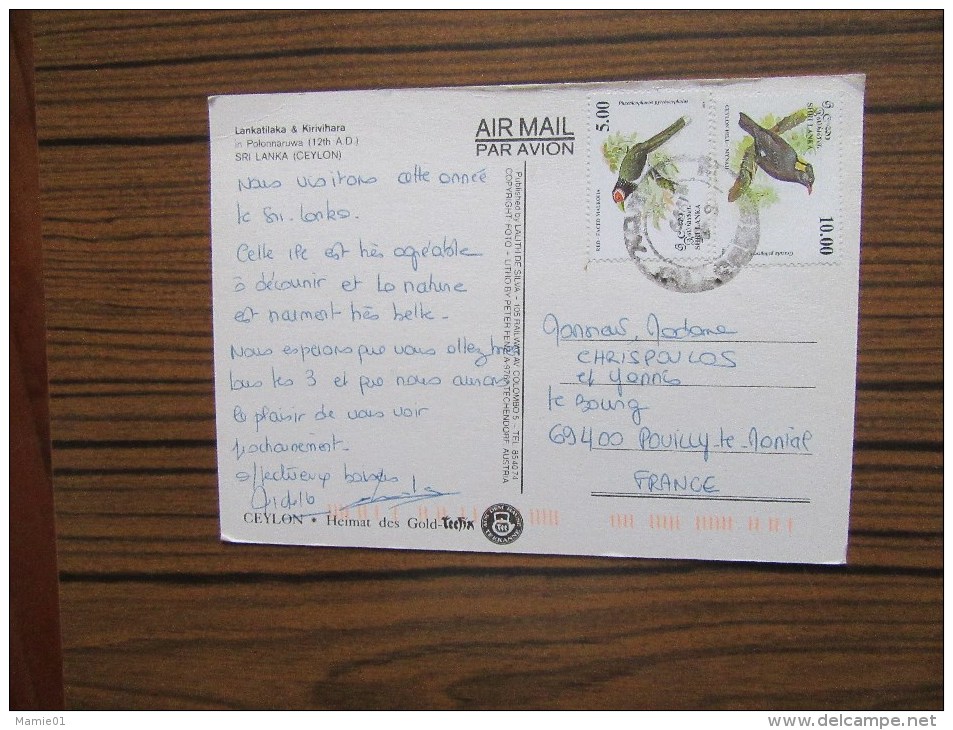 Lankatilaka & Kirivihara
in Polonnaruwa (12th A.D.)
SRI LANKA (CEYLON)
Nous visitons cette année
le Sri-Lanka.
Cette île est très agréable
à découvrir et la nature
est vraiment très belle.
Nous espérons que vous allez
tous les 3 et que nous aurons
le plaisir de vous voir
prochainement.
CEYLON • Heimat des Gold-Teefix
AIR MAIL
PAR AVION
Published by LALITH DE SILVA - 105 RAILWAY AV. COLOMBO 5 - TEL. 854074
COPYRIGHT FOTO - LITHO BY PETER
TECHENDORF AUSTRIA
5.00
RED-FACED MALKOHA
SRI LANKA
CEYLON HILL-MYNAH
SRI LANKA
10.00
Monsieur, Madame
CHRISPOULOS
et Yannis
le Bourg
69400 POUILLY-le-Monial
FRANCE
Mamie01
delcampe.net